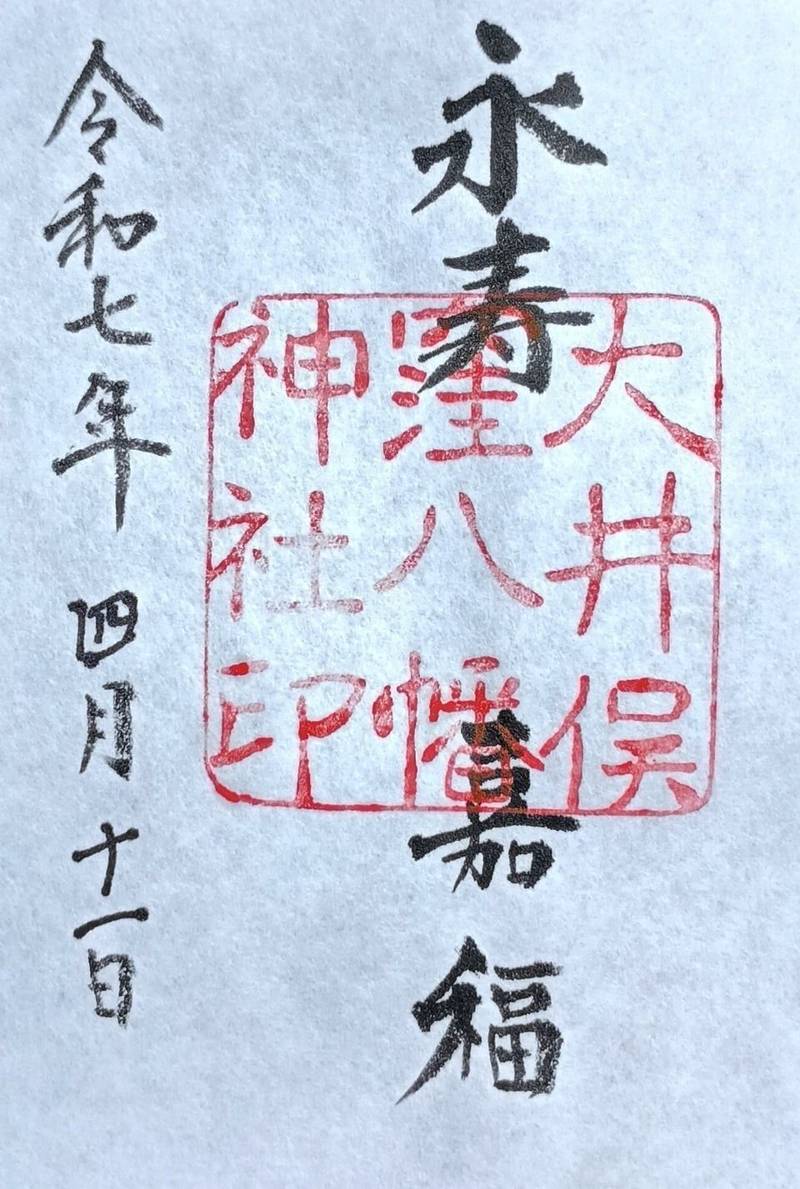 永寿嘉福
大井俣
窪八幡
神社印
令和七年四月十一日